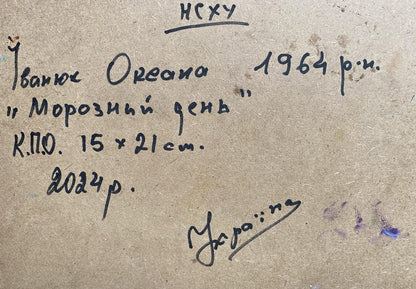 НСХУ
Іванюк Оксана 1964 р.н.
"Морозний день"
К.П.О. 15 × 21 см.
2024 р.
Україна